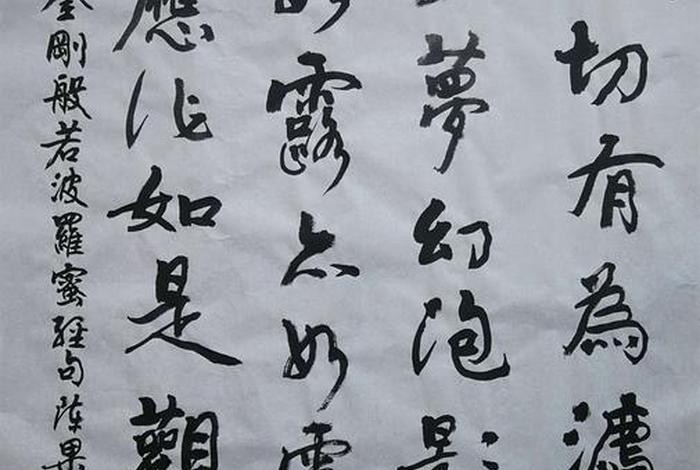 切有為灋
夢幻泡影
如露亦如電
應作如是觀
金剛般若波羅蜜經句陈果